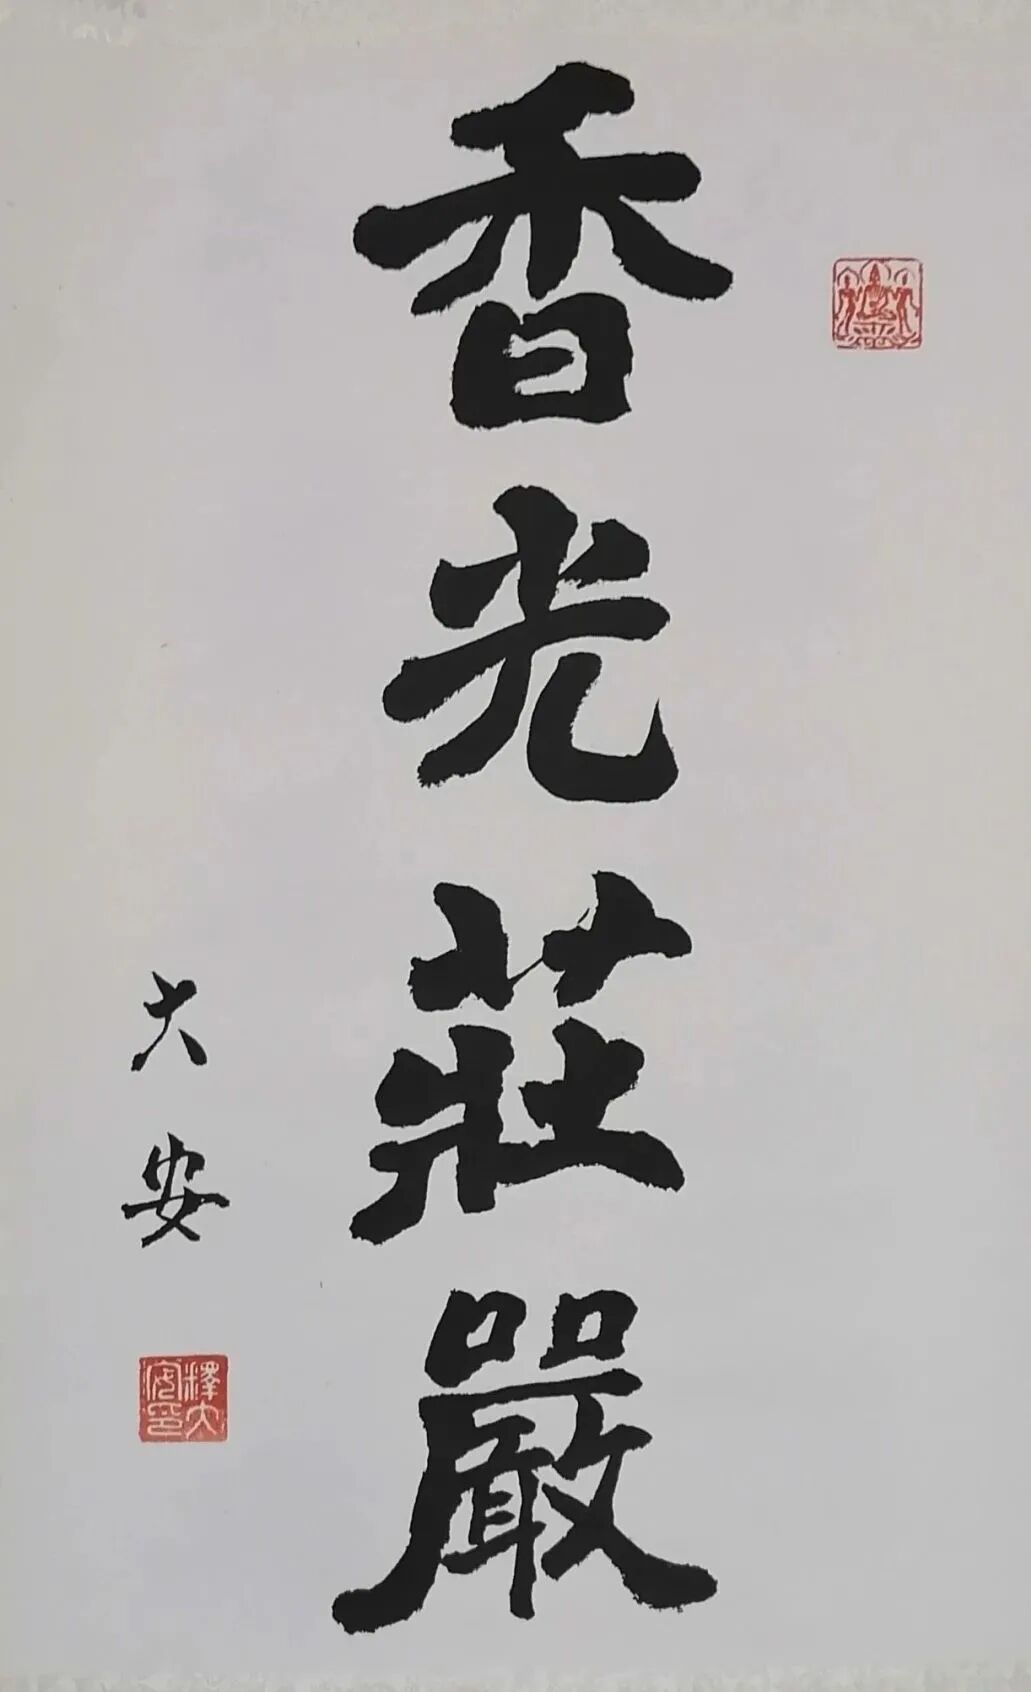 香光莊嚴
大安
釋大安印